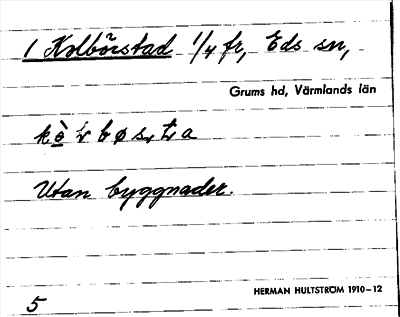 1 Kolbörstad 1/4 fr, Eds sn,
Grums hd, Värmlands län
Utan byggnader.
HERMAN HULTSTRÖM 1910–12
5